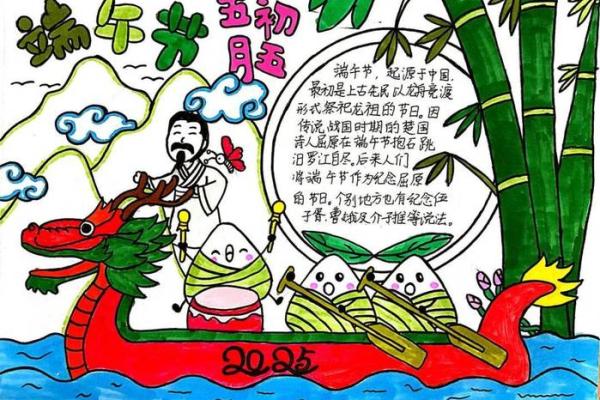 端午节
五月
初五
端午节，起源于中国，
最初是上古先民以龙舟竞渡
形式祭祀龙祖的节日。因
传说战国时期的楚国
诗人屈原在端午节抱石跳
汨罗江自尽，后来人们
将端午节作为纪念屈原
的节日。个别地方也有纪念伍
子胥、曹娥及介子推等说法。
2025